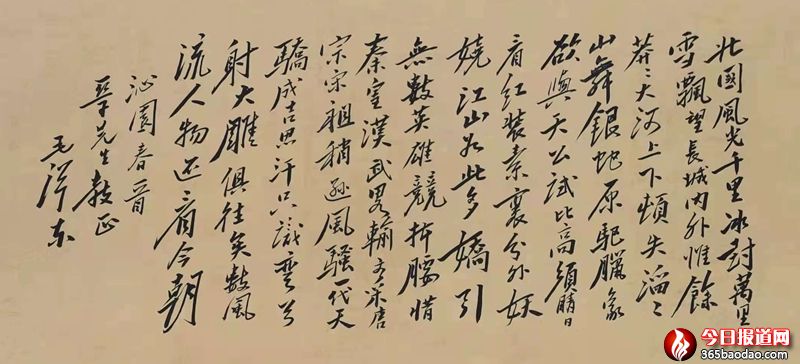 北國風光千里冰封萬里
雪飄望長城内外惟餘
莽〻大河上下頓失滔〻
山舞銀蛇原馳臘象
欲與天公試比高須晴日
看紅裝素裹分外妖
嬈江山如此多嬌引
無數英雄競折腰惜
秦皇漢武略輸文采唐
宗宋祖稍遜風騷一代天
驕成吉思汗只識彎弓
射大雕俱往矣數風
流人物還看今朝
沁園春
先生教正
毛澤东
今日报道网
365baodao.com